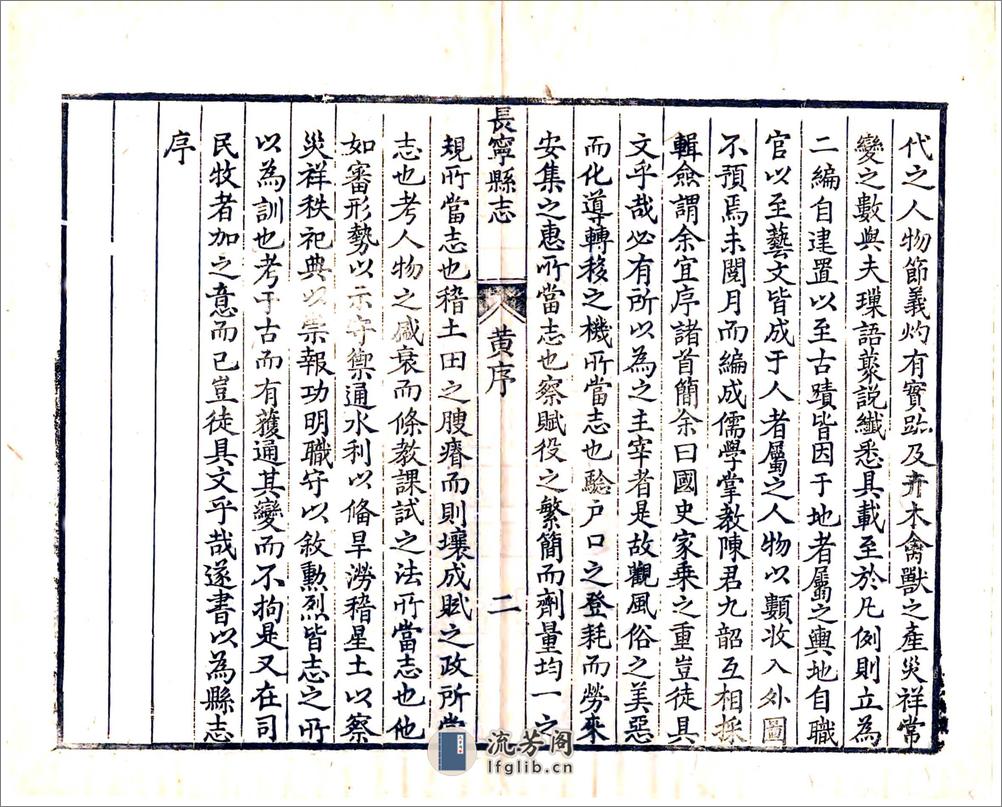 代之人物節義灼有實跡及卉木禽獸之產災祥常
變之數與夫璅語蕞說纖悉具載至於凡例則立為
二編自建置以至古蹟皆因于地者屬之輿地自職
官以至藝文皆成于人者屬之人物以顥收入外圖
不預焉未閱月而編成儒學掌教陳君九韶互相採
輯僉謂余宜序諸首簡余曰國史家乘之重豈徒具
文乎哉必有所以為之主宰者是故觀風俗之美惡
而化導轉移之機所當志也驗户口之登耗而勞來
安集之惠所當志也察賦役之繁簡而劑量均一之
長寧縣志
黄序
二
規所當志也稽土田之膄瘠而則壤成賦之政所當
志也考人物之盛衰而條教課試之法所當志也他
如審形勢以示守禦通水利以偹旱澇稽星土以察
災祥秩祀典以崇報功明職守以敘勳烈皆志之所
以為訓也考于古而有獲通其變而不拘是又在司
民牧者加之意而已豈徒具文乎哉遂書以為縣志
序
流芳阁
lfglib.cn